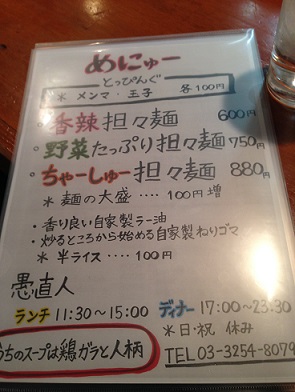 めにゅー
とっぴんぐ
＊ メンマ・玉子 各100円
・香辣担々麺 600円
・野菜たっぷり担々麺 750円
・ちゃーしゅー担々麺 880円
＊ 麺の大盛 ‥‥ 100円増
・香り良い自家製ラー油
・炒るところから始める自家製ねりゴマ
＊ 半ライス ‥‥ 100円
愚直人
ランチ 11:30～15:00
ディナー 17:00～23:30
＊日・祝 休み
うちのスープは鶏ガラと人柄
TEL 03-3254-8079